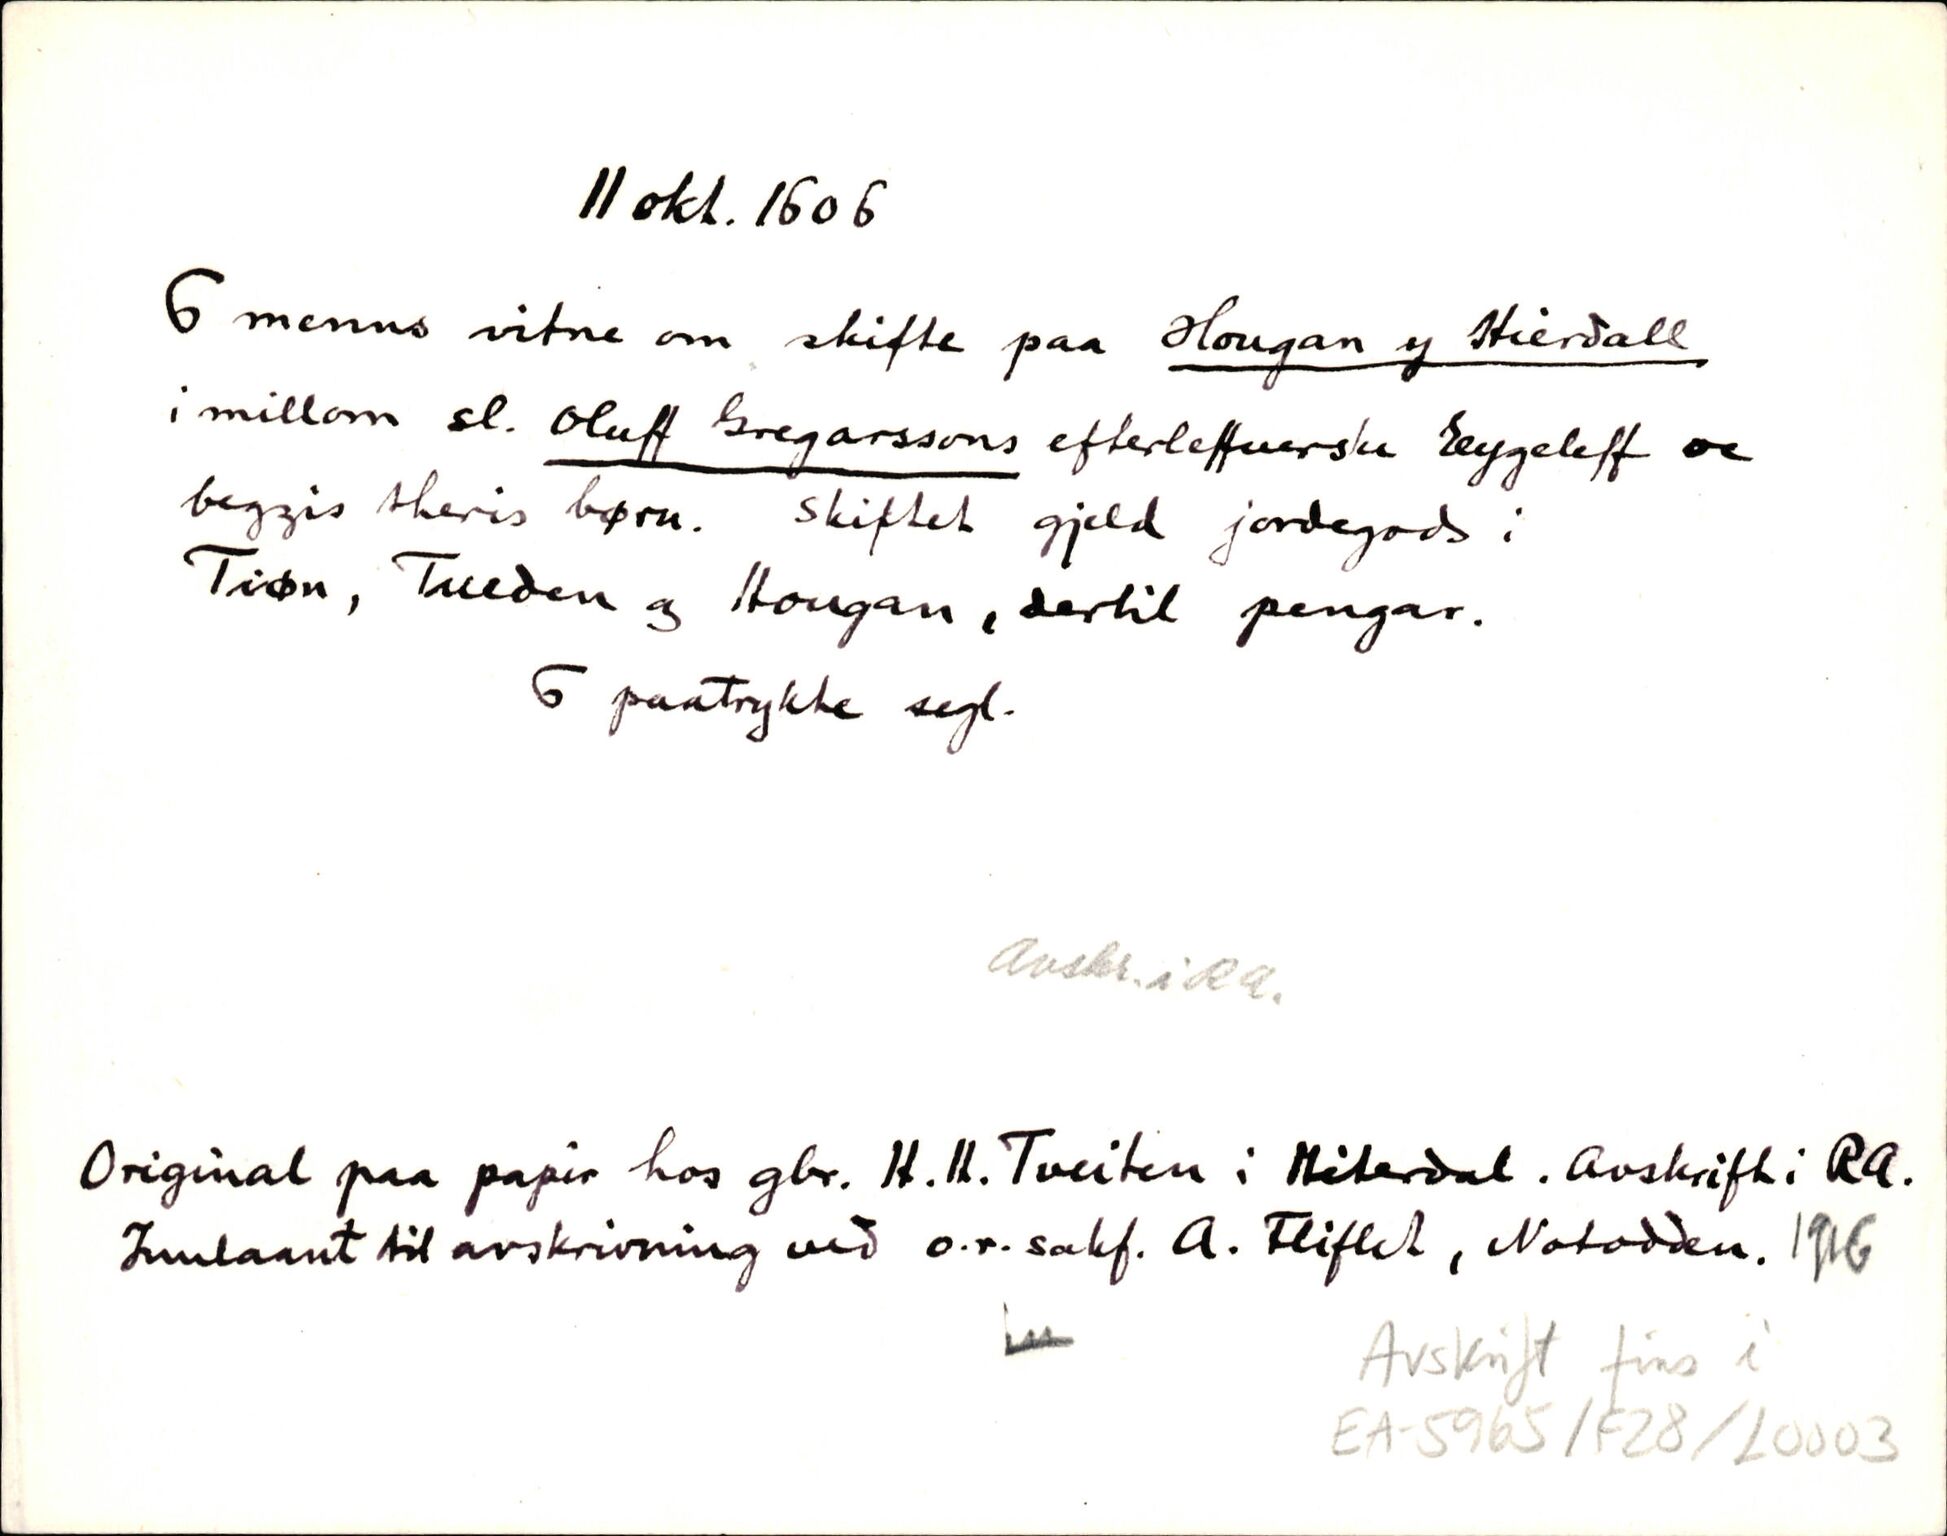 11 okt. 1606
6 menns vitne om skifte paa Hougan y Hierdall
i millom sl. Oluff Gregarssons efterleffuerske Eeygeleff oc
beggis theris børn. Skiftet gjeld jordegods i
Tiøn, Tueden og Hougan, dertil pengar.
6 paatrykte segl.
Avskr. i RA.
Original paa papir hos gbr. H. H. Tveiten i Hiterdal. Avskrift i RA.
Innlaant til avskrivning ved o.r.sakf. A. Fliflet, Notodden. 1916
Avskrift fins i
EA-5965/F28/L0003